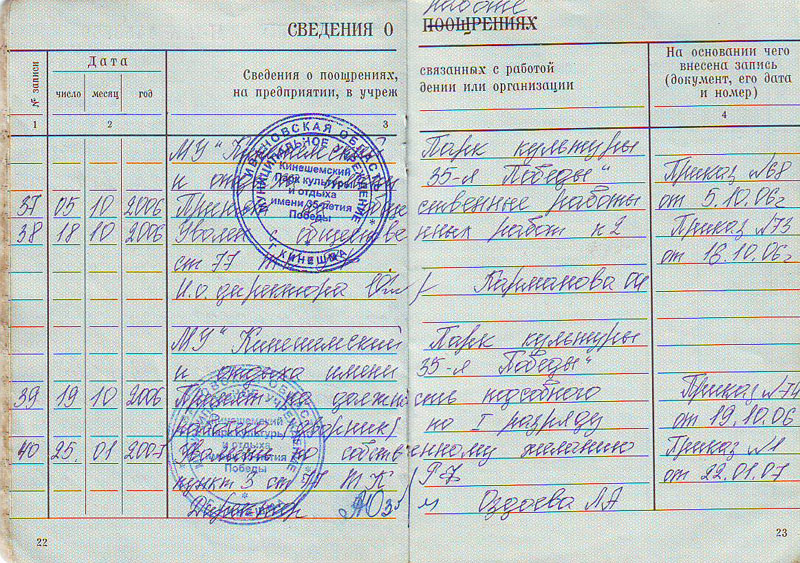 работе
СВЕДЕНИЯ О ПООЩРЕНИЯХ
№ записи
Дата
число месяц год
Сведения о поощрениях, связанных с работой
на предприятии, в учреж дении или организации
На основании чего
внесена запись
(документ, его дата
и номер)
1 2 3 4
МУ "Кинешемский Парк культуры
и отдыха имени 35-я Победы"
37 05 10 2006 общественные работы Приказ №68
от 5.10.06г
38 18 10 2006 Уволен с общественных работ п.2 Приказ №73
ст 77 от 16.10.06г
И.о. директора Карманова
МУ "Кинешемский Парк культуры
и отдыха имени 35-я Победы"
39 19 10 2006 Принят на должность подсобного Приказ №74
рабочего по I разряду от 19.10.06
40 25. 01 2007 по собственному желанию Приказ №1
пункт 3 ст 77 ТК РФ от 22.01.07
Директор Оздоева ЛА
ИВАНОВСКАЯ ОБЛАСТЬ
МУНИЦИПАЛЬНОЕ УЧРЕЖДЕНИЕ
Кинешемский
Парк культуры
и отдыха
имени 35-летия
Победы
г. КИНЕШМА
Кинешемский
Парк культуры
и отдыха
имени 35-летия
Победы
22
23